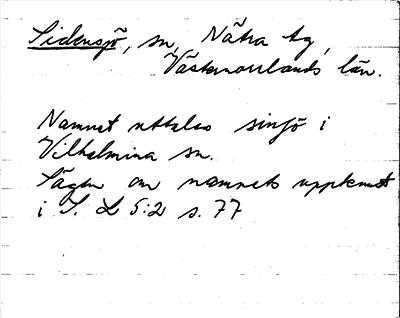 Sidensjö, sn, Nätra tg,
Västernorrlands län.
Namnet uttalas sinsjö i
Vilhelmina sn.
Sägen om namnets uppkomst
i S. L 5:2 s. 77